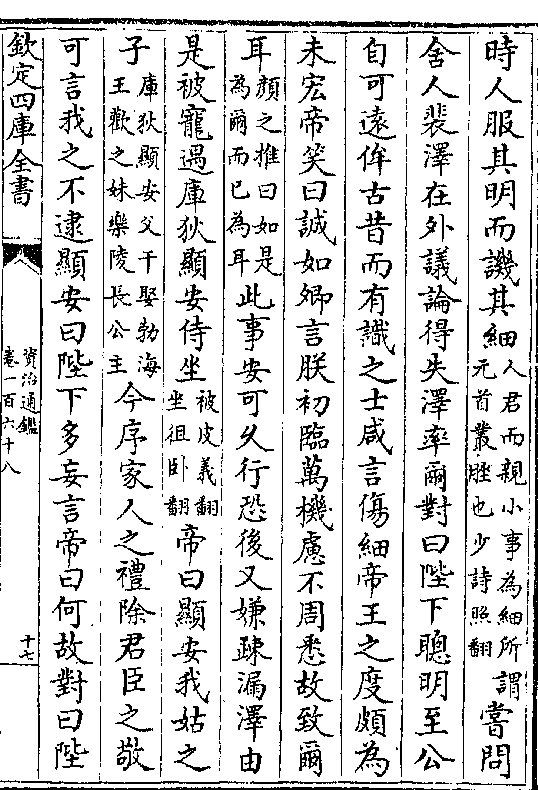 時人服其明而譏其細人君而親小事為細所謂元首叢脞也少詩照翻嘗問
舍人裴澤在外議論得失澤率爾對曰陛下聰明至公
自可遠侔古昔而有識之士咸言傷細帝王之度頗為
未宏帝笑曰誠如卿言朕初臨萬機慮不周悉故致爾
耳顔之推曰如是為爾而已為耳此事安可久行恐後又嫌疎漏澤由
是被寵遇庫狄顯安侍坐被皮義翻坐徂卧翻帝曰顯安我姑之
子庫狄顯安父干娶勃海王歡之妹樂陵長公主今序家人之禮除君臣之敬
可言我之不逮顯安曰陛下多妄言帝曰何故對曰陛
欽定四庫全書
資治通鑑
卷一百六十八
十七